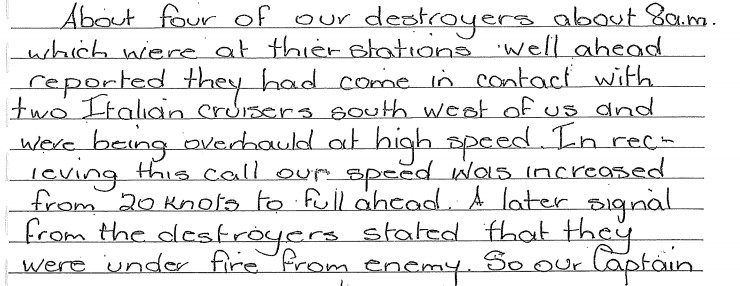 About four of our destroyers about 8a.m.
which were at thier stations well ahead
reported they had come in contact with
two Italian cruisers south west of us and
were being overhauld at high speed. In rec-
ieving this call our speed was increased
from 20 knots to full ahead. A later signal
from the destroyers stated that they
were under fire from enemy. So our Captain